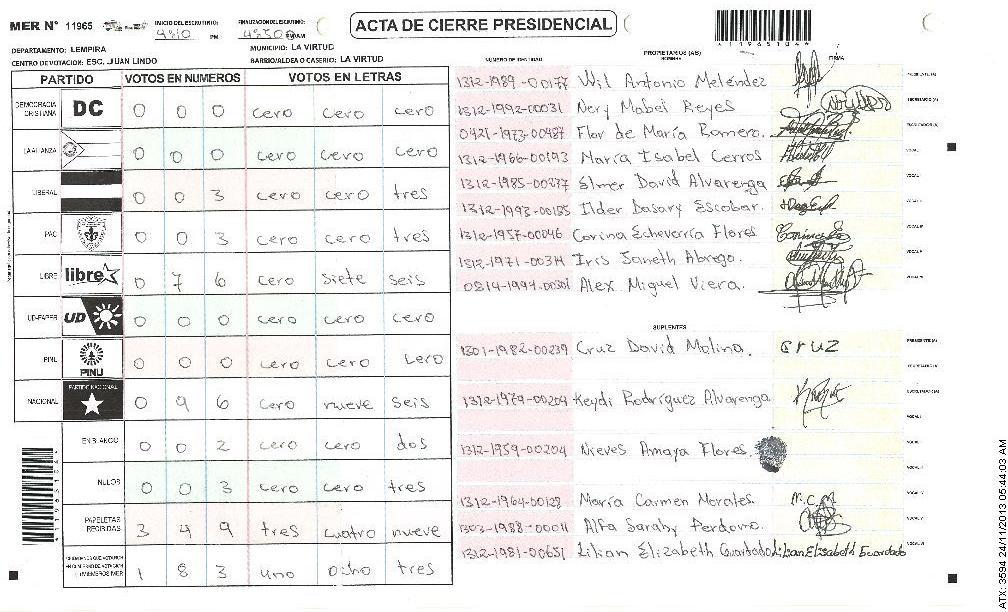 MER N° 11965
INICIO DEL ESCRUTINIO:
FINALIZACION DEL ESCRUTINIO:
PM AM
ACTA DE CIERRE PRESIDENCIAL
DEPARTAMENTO: LEMPIRA
MUNICIPIO: LA VIRTUD
CENTRO DE VOTACION: ESC. JUAN LINDO
BARRIO/ALDEA O CASERIO: LA VIRTUD
PARTIDO VOTOS EN NUMEROS VOTOS EN LETRAS
DEMOCRACIA CRISTIANA DC 0 0 0 cero cero cero
LA ALIANZA 0 0 0 cero cero cero
LIBERAL 0 0 3 cero cero tres
PAC 0 0 3 cero cero tres
LIBRE libre 0 7 6 cero siete seis
UD-FAPER UD 0 0 0 cero cero cero
PINU PINU 0 0 0 cero cero cero
NACIONAL PARTIDO NACIONAL 0 9 6 cero nueve seis
EN BLANCO 0 0 2 cero cero dos
NULOS 0 0 3 cero cero tres
PAPELETAS RECIBIDAS 3 4 9 tres cuatro nueve
1 8 3 uno ocho tres
NUMERO DE IDENTIDAD PROPIETARIOS (AS) NOMBRE FIRMA
1312-1989-00177 Wil Antonio Meléndez
1312-1992-00031 Nery Mabel Reyes
0421-1973-00487 Flor de María Romero.
1312-1966-00193 María Isabel Cerros
1312-1985-00277 Elmer David Alvarenga
1312-1993-00185 Ilder Dasary Escobar.
1312-1957-00046 Corina Echeverría Flores
1312-1971-00314 Iris Janeth Abrego.
Alex Miguel Viera.
SUPLENTES
1301-1982-00239 Cruz David Molina. cruz
1312-1979-00204 Keydi Rodríguez Alvarenga
1312-1959-00204 Nieves Amaya Flores.
1312-1964-00128 María Carmen Morales. M.C.M
1303-1988-00011 Alfa Sarahy Perdomo.
1312-1981-00651 Lilian Elizabeth Guardado Lilian Elisabeth Guardado
ATX: 3594 24/11/2013 05:44:03 AM